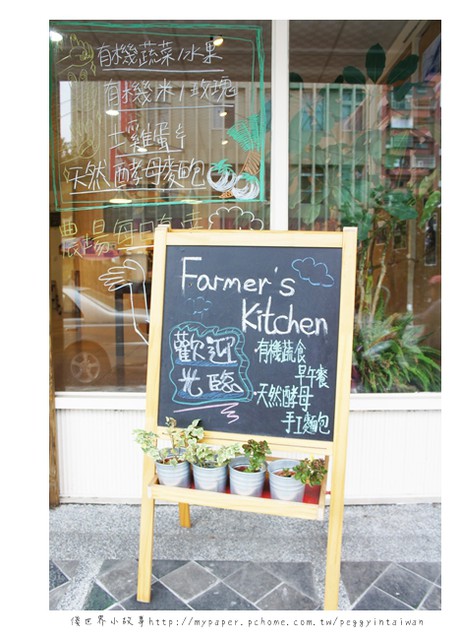 有機蔬菜/水果
有機米/玫瑰
土雞蛋
天然酵母麵包
農場每日
Farmer's
Kitchen
歡迎
光臨
有機蔬食
早午餐
天然酵母
手工麵包
倭世界小故事http://mypaper.pchome.com.tw/peggyintaiwan